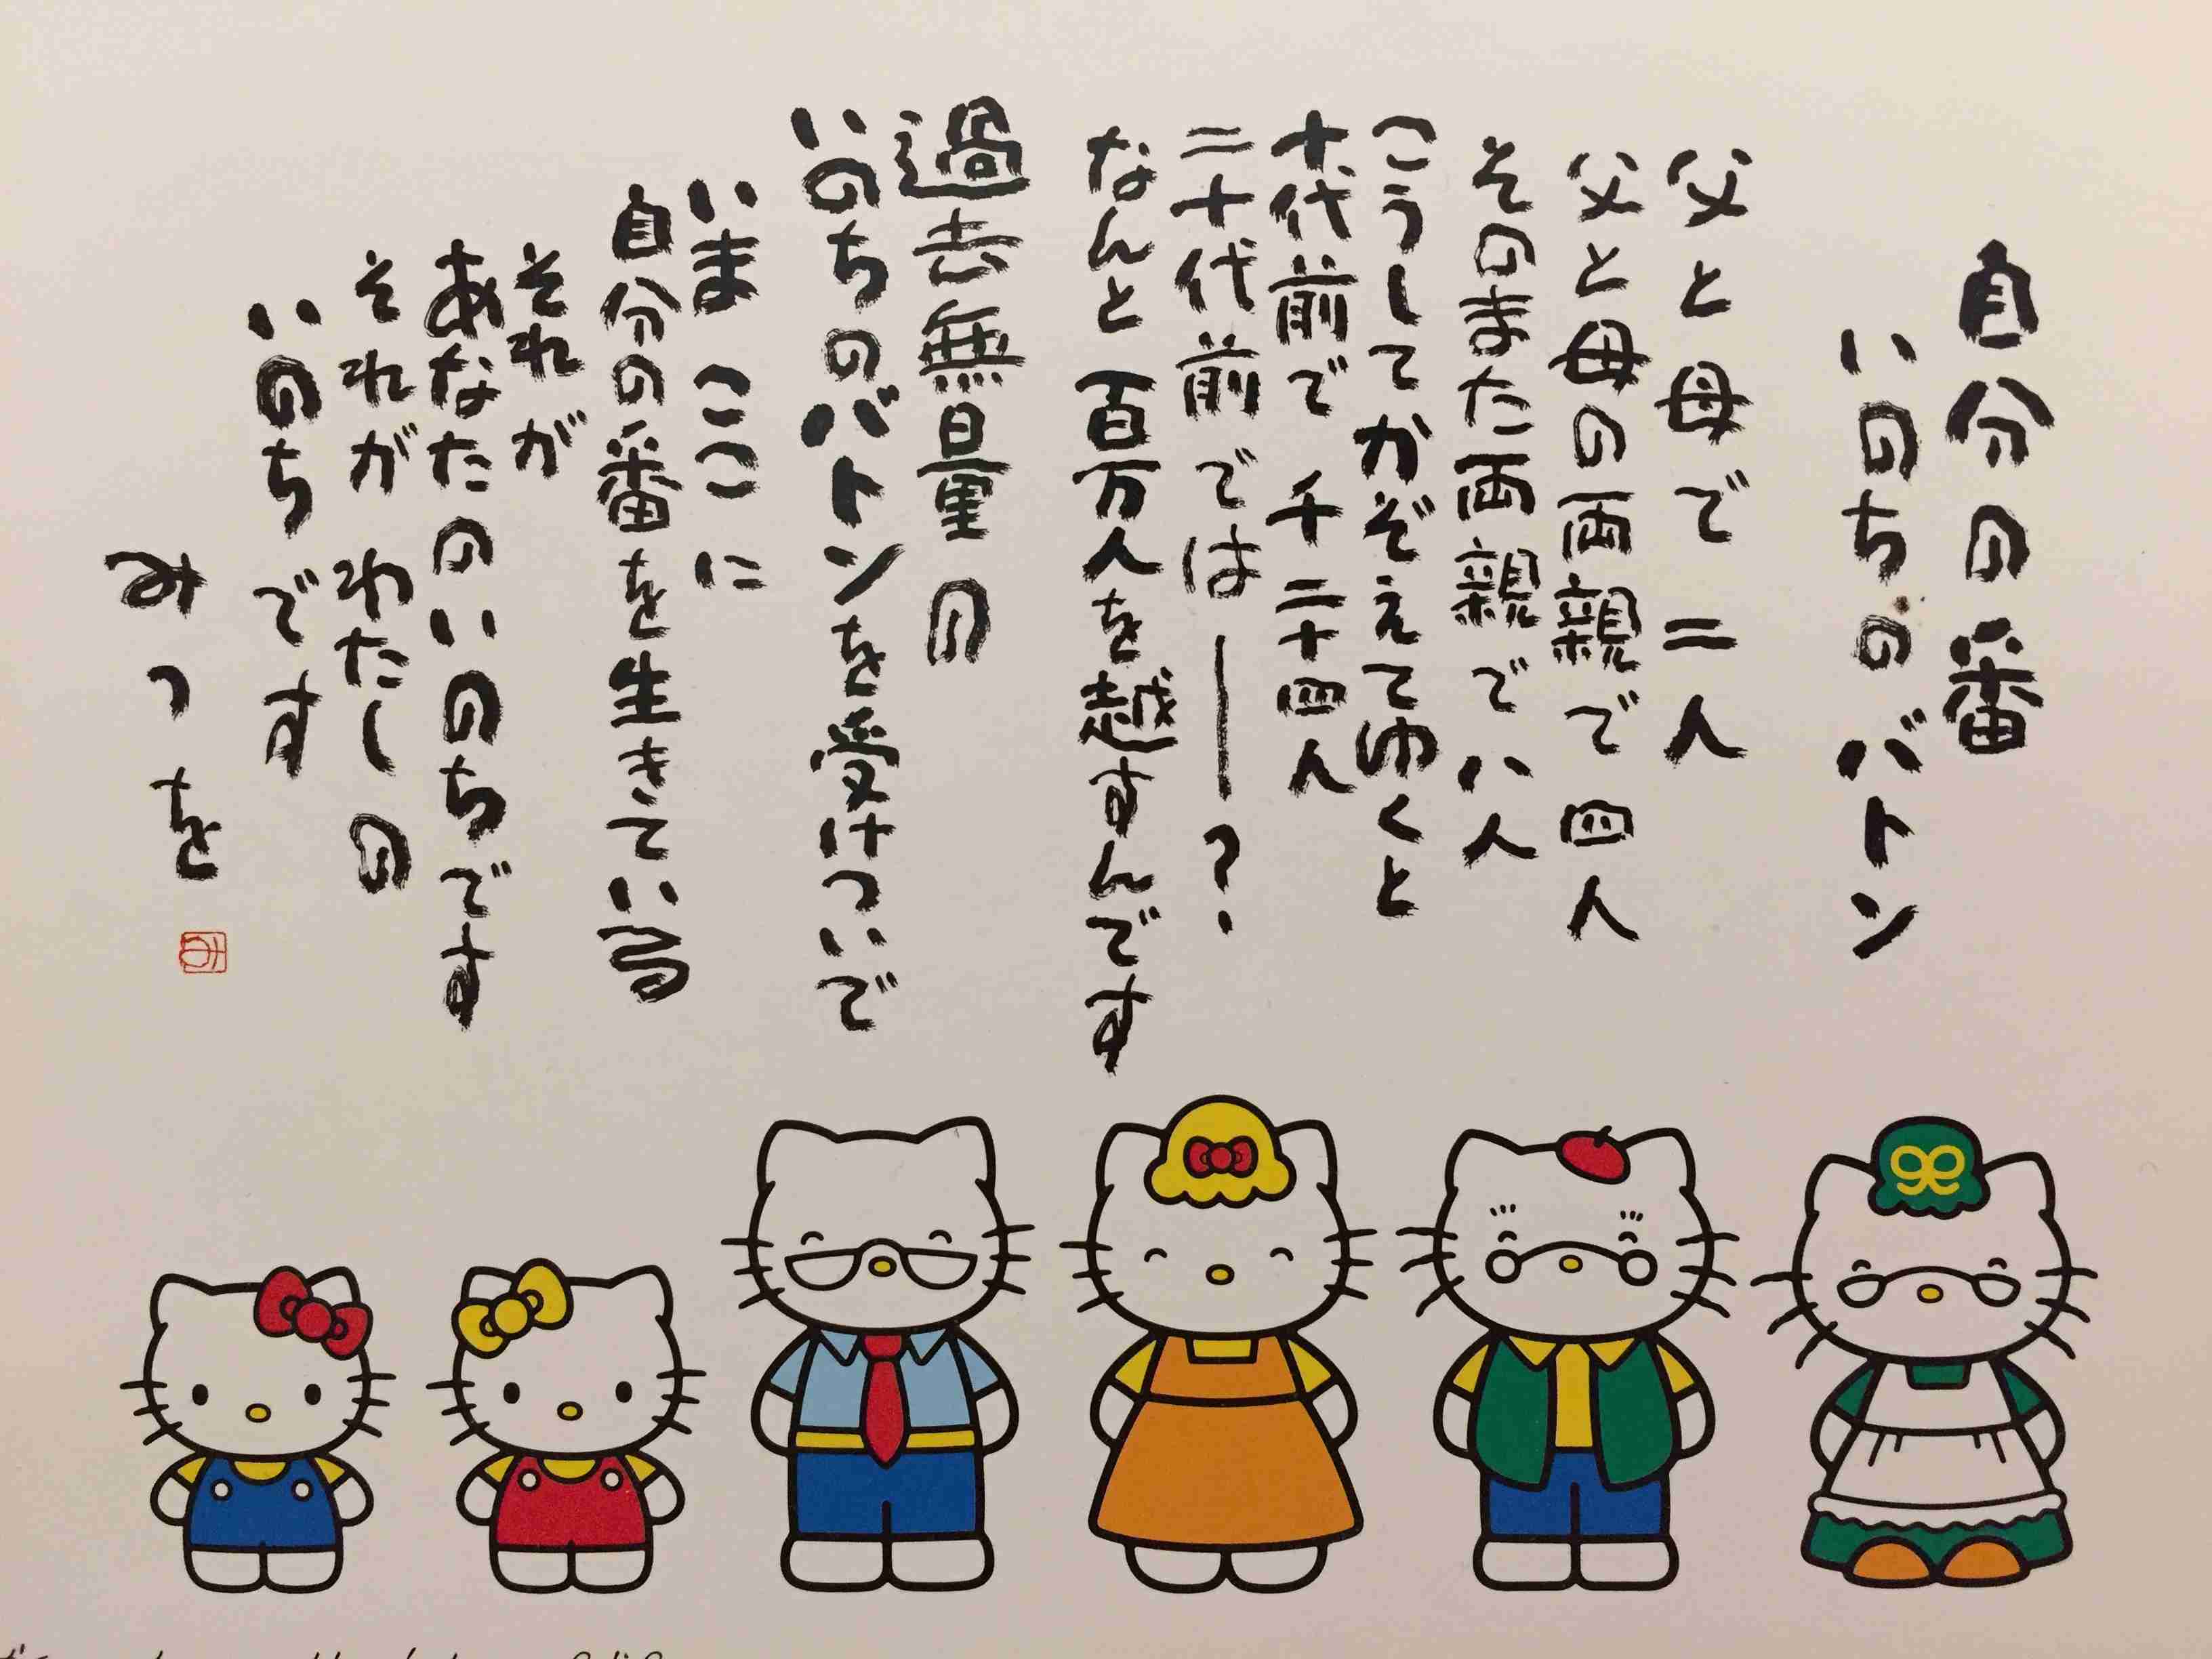 自分の番
いのちのバトン
父と母で二人
父と母の両親で四人
そのまた両親で八人
こうしてかぞえてゆくと
十代前で千二十四人
二十代前では―?
なんと百万人を越すんです
過去無量の
いのちのバトンを受けついで
いまここに
自分の番を生きている
それが
あなたのいのちです
それがわたしの
いのちです
みつを